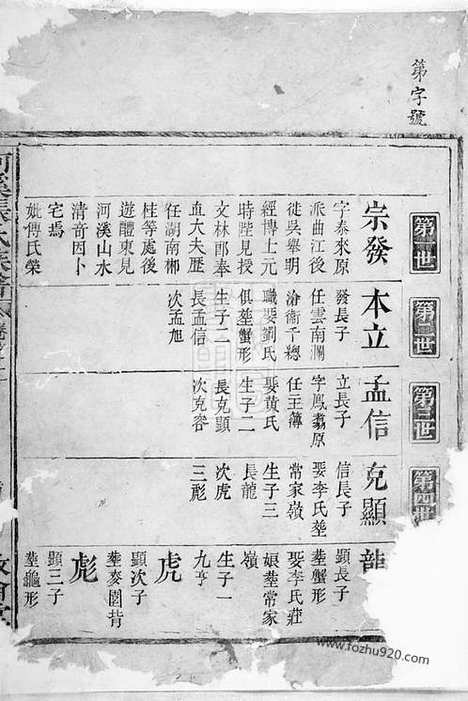 第字號
第一世
第二世
第三世
第四世
宗發
字泰來原
派曲江後
徙吳舉明
經博士元
時陞見授
文林郎奉
直大夫歷
任湖南郴
桂等處後
遊醴東見
河溪山水
清奇因卜
宅焉
妣傅氏榮
本立
發長子
任雲南瀾
滄衛千總
職娶劉氏
俱塟蟹形
生子二
長孟信
次孟旭
孟信
立長子
字鳳翥原
任主簿
娶黃氏
生子二
長克顯
次克容
克顯
信長子
娶李氏塟
常家嶺
生子三
長龍
次虎
三彪
龍
顯長子
塟蟹形
娶李氏莊
娘塟常家
嶺
生子一
九亨
虎
顯次子
塟麥園背
彪
顯三子
塟龜形
www.fozhu920.com